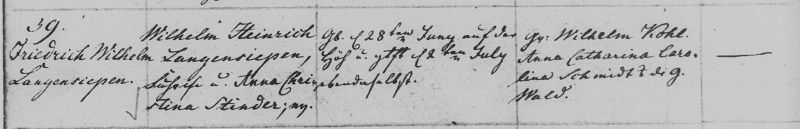 39.
Friedrich Wilhelm
Langensiepen.
Wilhelm Heinrich
Langensiepen,
u. Anna Chri-
stina Stinder;
Gb. d 28ten Juny auf der
Höh u. gtft d 2ten July
ebendaselbst.
Gv: Wilhelm Kohl.
Anna Catharina Caro-
lina Schmidt
Wald.